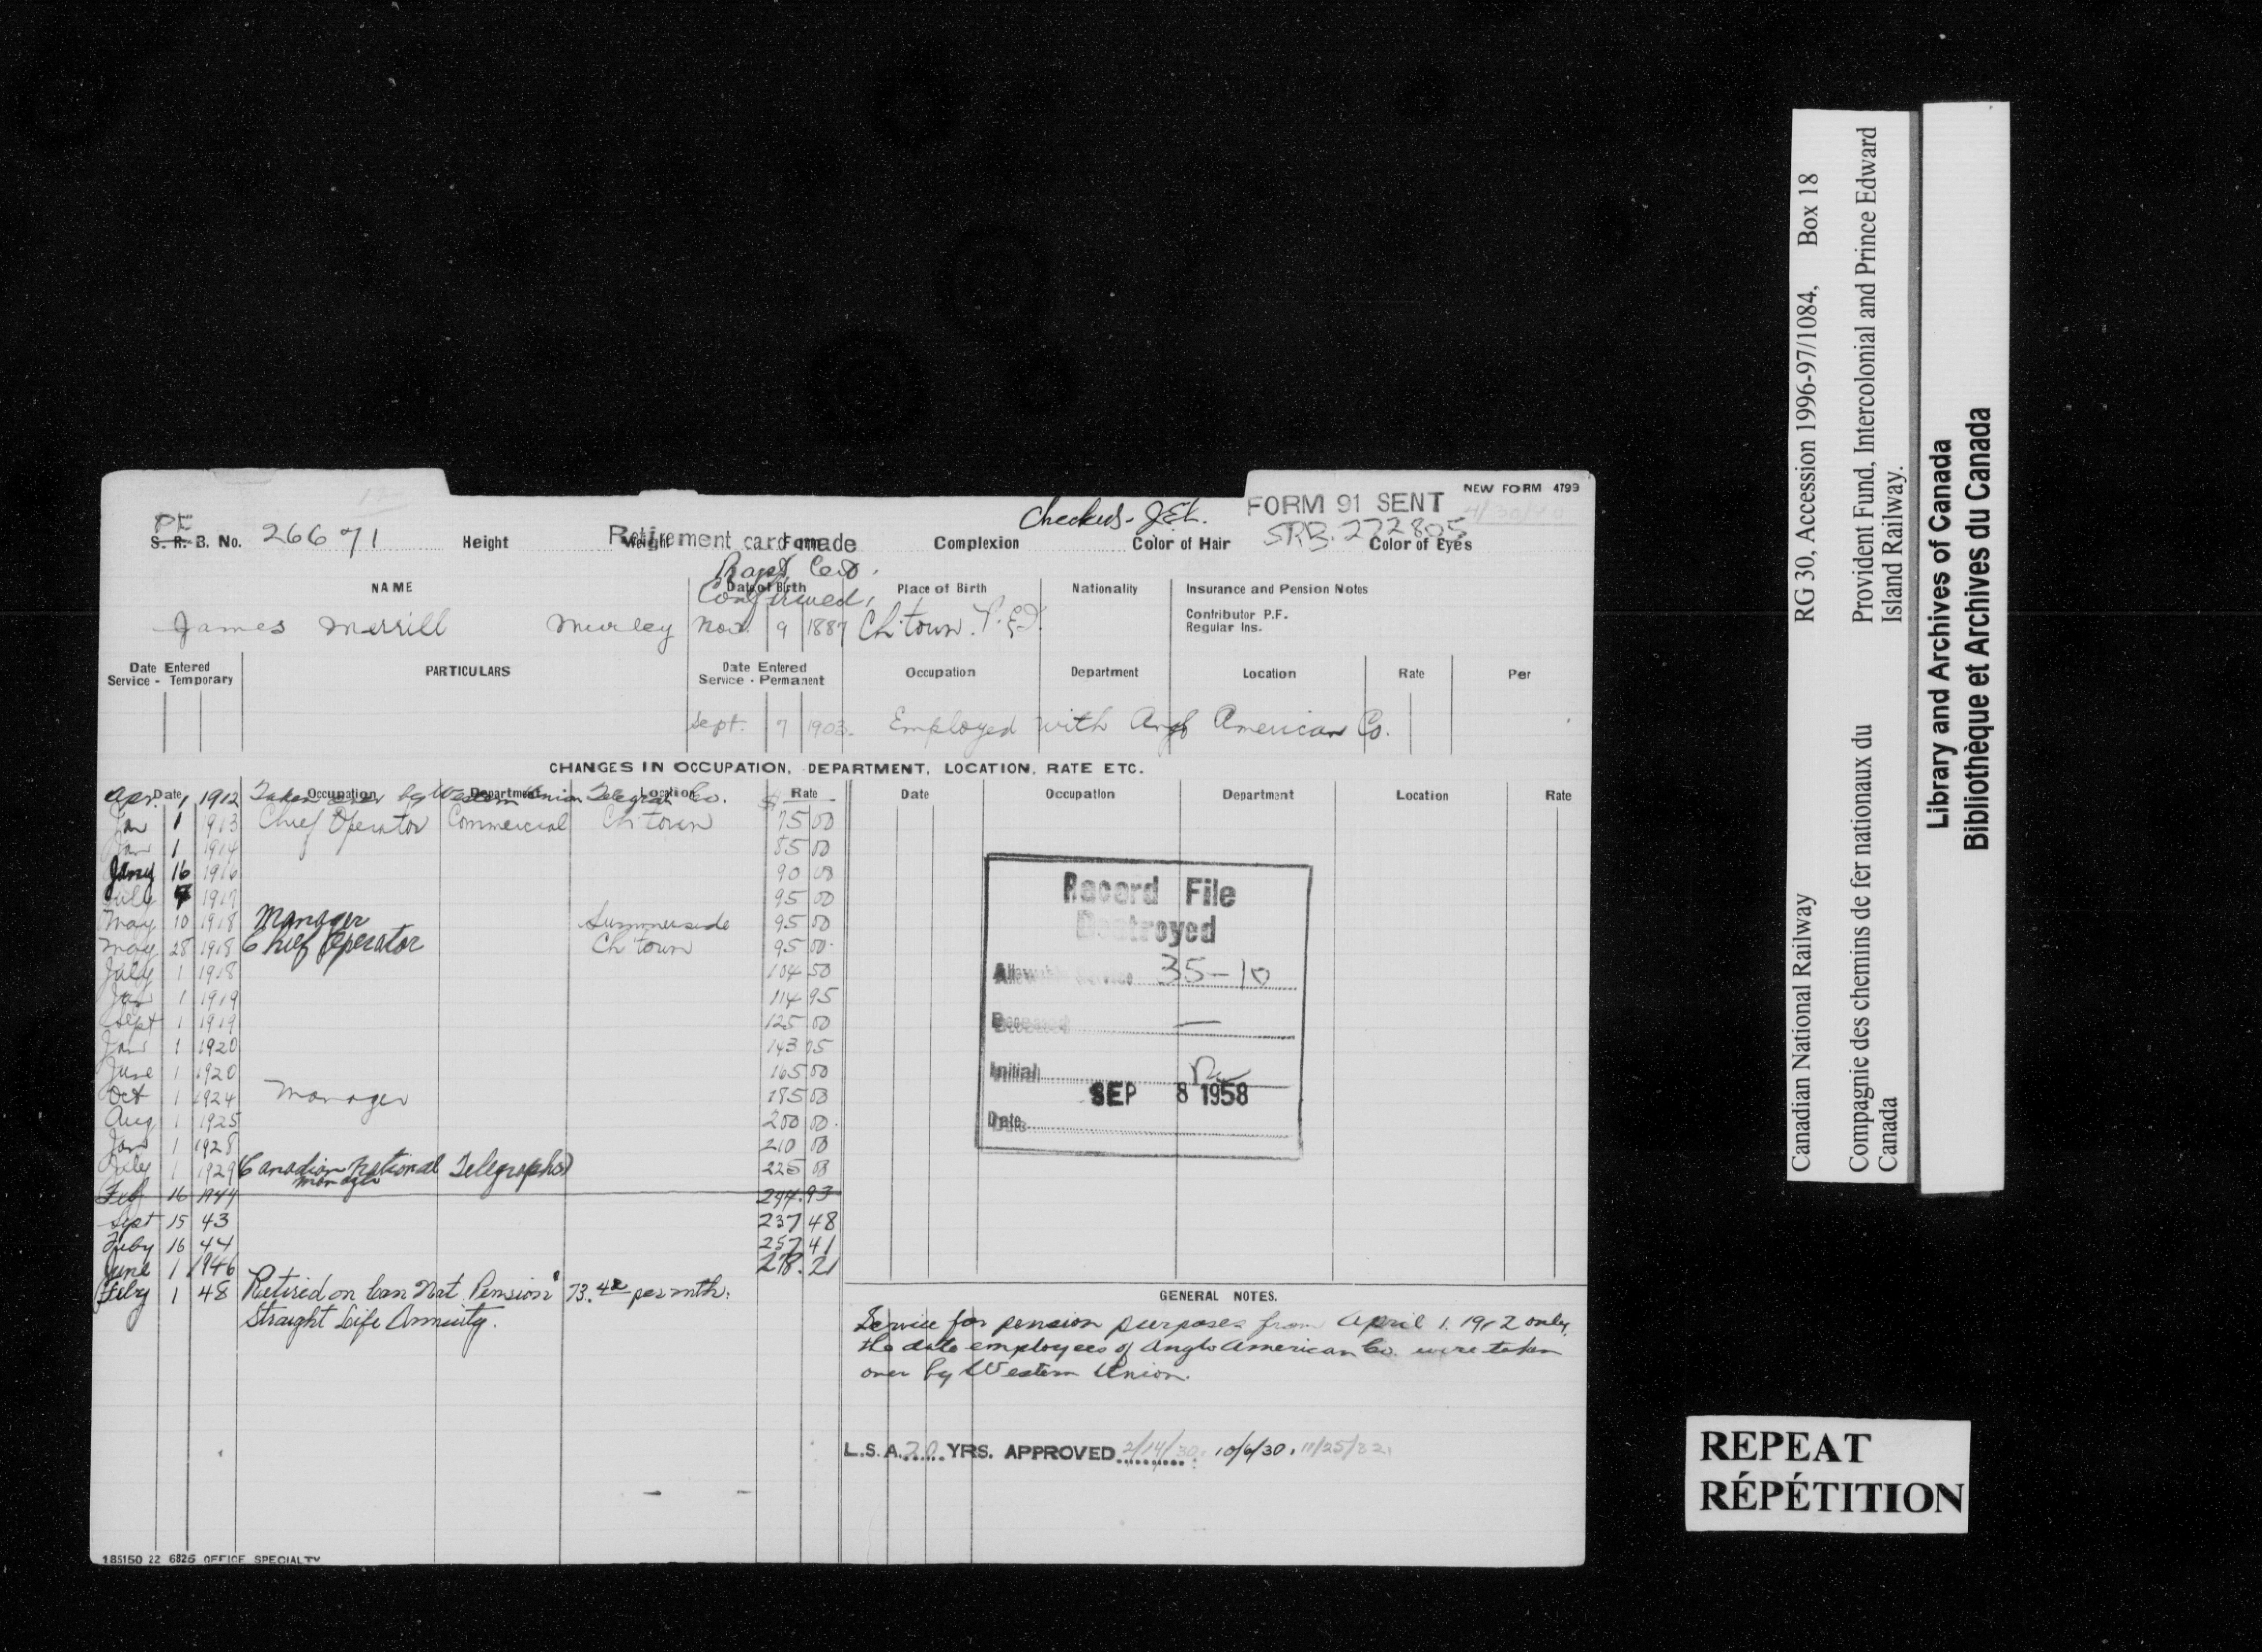 NEW FORM 4799
Checked. J.E.L.
FORM 91 SENT
PE
S. R. B. No. 26671 Height Weight Form Complexion Color of Hair Color of Eyes
Retirement card made
SRB. 272805
Bapt Cert.
Confirmed,
NAME Date of Birth Place of Birth Nationality Insurance and Pension Notes
James Merrill Murley Nov. 9 1887 Ch'town. P.E.I. Contributor P.F.
Regular Ins.
Date Entered Service - Temporary PARTICULARS Date Entered Service - Permanent Occupation Department Location Rate Per
Sept. 7 1903. Employed with Anglo American Co.
CHANGES IN OCCUPATION, DEPARTMENT, LOCATION, RATE ETC.
Date Occupation Department Location Rate Date Occupation Department Location Rate
Apr. 1 1912 Taken over by Western Union Telegraph Co. $
Jan 1 1913 Chief Operator Commercial Ch'town 75 00
Jan 1 1914 85 00
Jany 16 1916 90 00
July 1917 95 00
May 10 1918 Manager Summerside 95 00
May 28 1918 Chief Operator Ch'town 95 00
July 1 1918 104 50
Jan 1 1919 114 95
Sept 1 1919 125 00
Jan 1 1920 143 75
June 1 1920 165 00
Oct 1 1924 Manager 185 00
Aug 1 1925 200 00
Jan 1 1928 210 00
July 1 1929 (Canadian National Telegraphs) 225 00
Manager
Feb 16 1944 294.93
Sept 15 43 237 48
Feby 16 44 257 41
June 1 1946 278.21
Feby 1 48 Retired on Can Nat Pension 73.42 per mth.
Straight Life Annuity.
Record File
Destroyed
Allowable Service 35-10
Deceased —
Initial
SEP 8 1958
Date
GENERAL NOTES.
Service for pension purposes from April 1. 1912 only,
the date employees of Anglo American Co. were taken
over by Western Union.
L.S.A. 20 YRS. APPROVED 2/14/30. 10/6/30. 11/25/32.
185150 22 6826 OFFICE SPECIALTY
Canadian National Railway RG 30, Accession 1996-97/1084, Box 18
Compagnie des chemins de fer nationaux du Canada
Provident Fund, Intercolonial and Prince Edward Island Railway.
Library and Archives of Canada
Bibliothèque et Archives du Canada
REPEAT
RÉPÉTITION